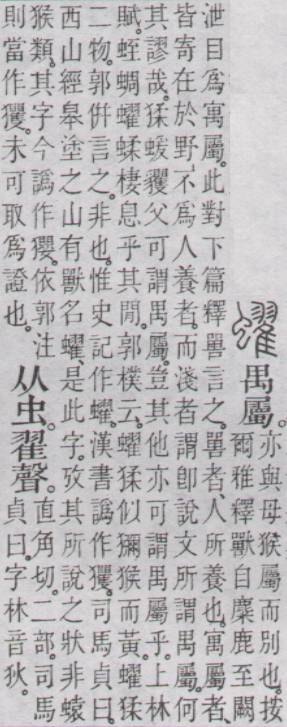 蠗禺屬。亦與母猴屬而別也。按
爾雅釋獸自麋鹿至闕
泄目爲寓屬。此對下篇釋嘼言之。嘼者、人所養也。寓屬者、
皆寄在於野、不爲人養者。而淺者謂卽說文所謂禺屬。何
其謬哉。猱蝯玃父可謂禺屬。豈其他亦可謂禺屬乎。上林
賦。蛭蜩蠗蝚棲息乎其閒。郭樸云。蠗猱似獼猴而黃。蠗猱
二物。郭倂言之。非也。惟史記作蠗。漢書譌作玃。司馬貞曰。
西山經皋塗之山有獸名蠗。是此字。攷其所說之狀非蝯
猴類。其字今譌作𤣎。依郭注
則當作玃。未可取爲證也。
从虫。翟聲。直角切。二部。司馬
貞曰。字林音狄。